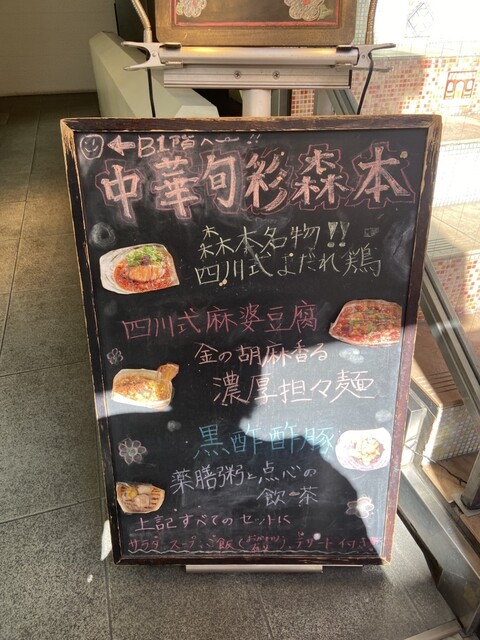 ←B1階へ〜!!
中華旬彩森本
森本名物!!
四川式よだれ鶏
四川式麻婆豆腐
金の胡麻香る
濃厚担々麺
黒酢酢豚
薬膳粥と点心の
飲茶
上記すべてのセットに
サラダ、スープ、ご飯(おかわりあり)、デザート付き